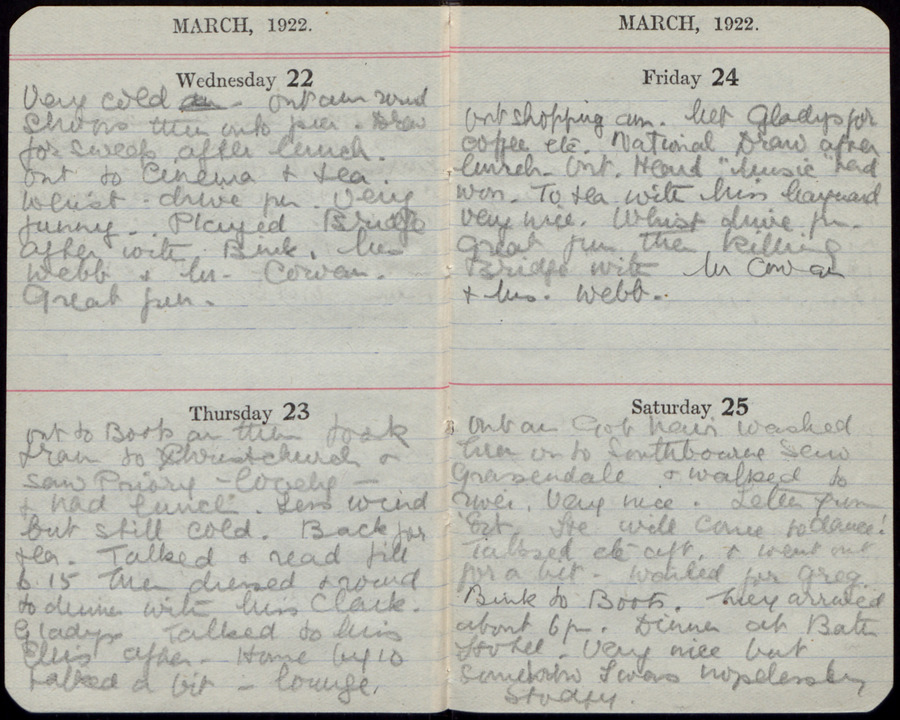 MARCH, 1922.
Wednesday 22
Very cold out am round
shops then onto pier. Draw
for sweep after lunch.
out to Cinema & tea.
Whist-drive pm. Very
funny. Played Bridge
after with Bink, Mrs
Webb & Mr. Cowan.
Great fun.
Thursday 23
out to Boots am then took
tram to Christchurch &
saw Priory - lovely -
& had lunch. Less wind
but still cold. Back for
tea. Talked & read till
6.15 then dressed & round
to dinner with Miss Clark.
Gladys. Talked to Miss
Ellis after. Home by 10
talked a bit - lounge.
MARCH, 1922.
Friday 24
out shopping am. Met Gladys for
coffee etc. National Draw after
lunch. Out. Heard "Music" had
won. To tea with Miss Hayward
very nice. Whist drive pm.
Great fun then killing
Bridge with Mr Cowan
& Mrs. Webb.
Saturday 25
out am Got hair washed
then on to Southbourne saw
Grassendale & walked to
river. Very nice. Letter from
He will come to dance!
Talked etc aft. & went out
for a bit. Waited for Greg.
Bink to Boots. They arrived
about 6 pm. Dinner at Bath
Hotel. Very nice but
somehow I was hopelessly
stodgy.